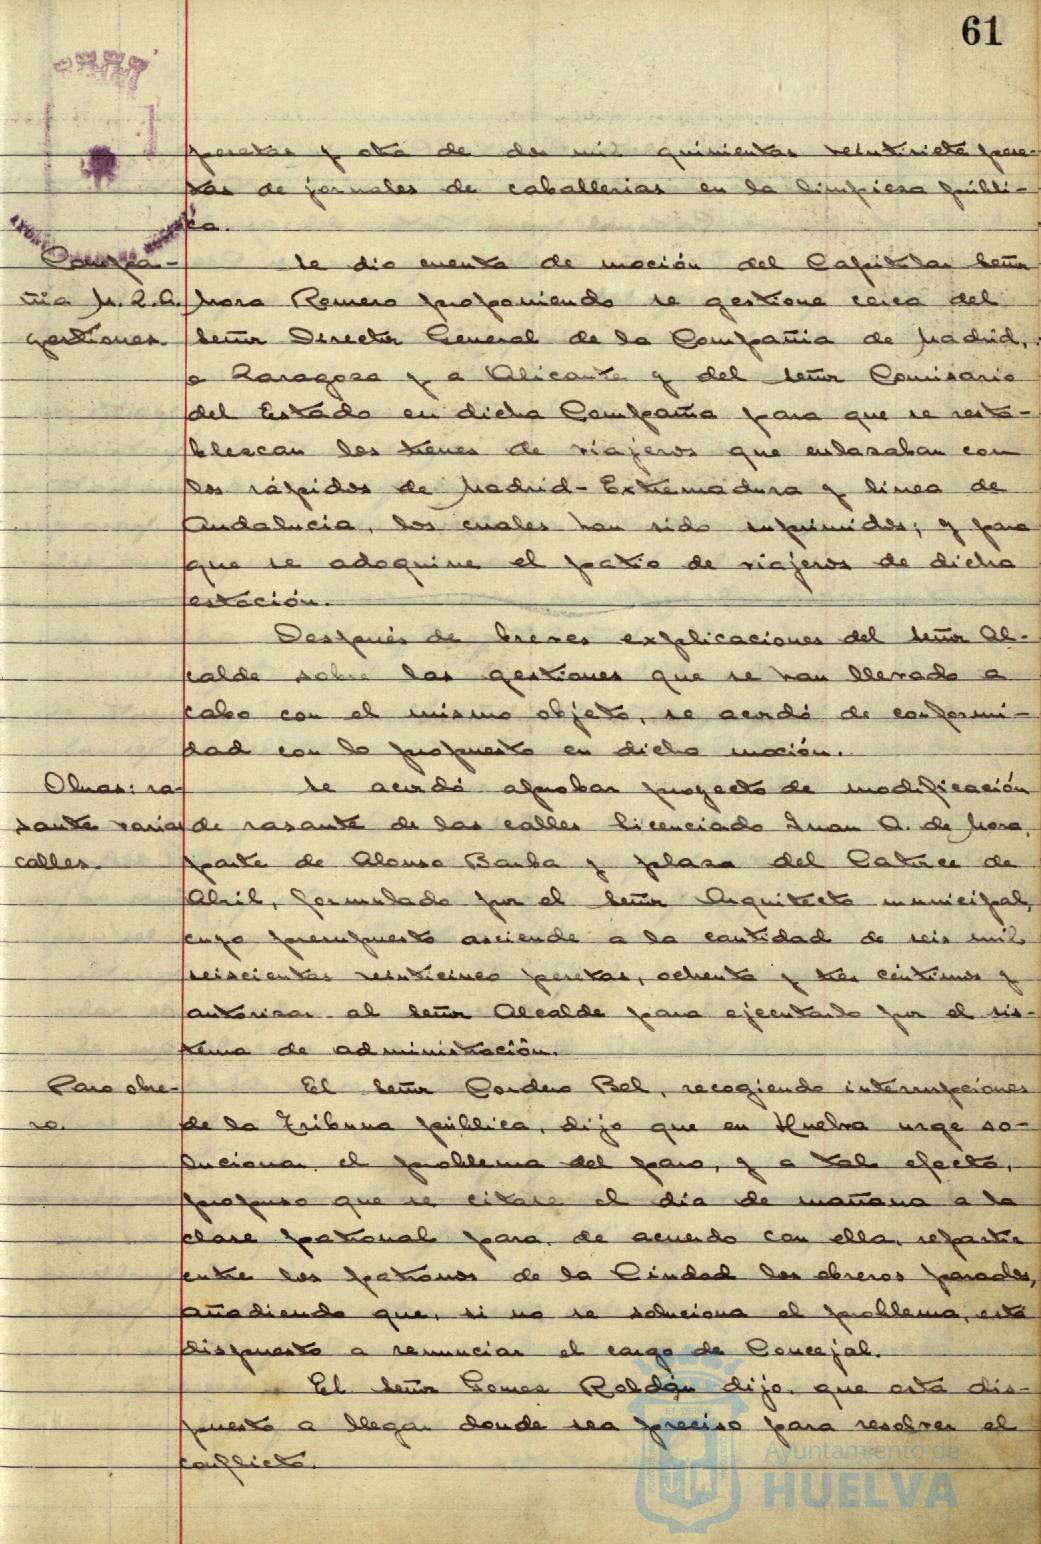 61
pesetas y otra de dos mil quinientas veintisiete pese-
tas de jornales de caballerias en la limpieza públi-
ca.
Compa-
ñia M.Z.A.
gestiones.
Se dio cuenta de moción del Capitular Señor
Mora Romero proponiendo se gestione cerca del
Señor Director General de la Compañia de Madrid,
a Zaragoza y a Alicante y del Señor Comisario
del Estado en dicha Compañia para que se resta-
blezcan los trenes de viajeros que enlazaban con
los rápidos de Madrid-Extremadura y linea de
Andalucia, los cuales han sido suprimidos; y para
que se adoquine el patio de viajeros de dicha
estación.
Después de breves explicaciones del Señor Al-
calde sobre las gestiones que se han llevado a
cabo con el mismo objeto, se acordó de conformi-
dad con lo propuesto en dicha moción.
Obras: ra-
sante varias
calles.
Se acordó aprobar proyecto de modificación
de rasante de las calles Licenciado Juan A. de Mora,
parte de Alonso Barba y plaza del Catorce de
Abril, formulado por el Señor Arquitecto municipal,
cuyo presupuesto asciende a la cantidad de seis mil
seiscientas veinticinco pesetas, ochenta y tres céntimos y
autorizar al Señor Alcalde para ejecutarlo por el sis-
tema de administración.
Paro obre-
ro.
El Señor Cordero Bel, recogiendo interrupciones
de la Tribuna pública, dijo que en Huelva urge so-
lucionar el problema del paro, y a tal efecto,
propuso que se citase el dia de mañana a la
clase patronal para, de acuerdo con ella, repartir
entre los patronos de la Ciudad los obreros parados,
añadiendo que, si no se soluciona el problema, está
dispuesto a renunciar el cargo de Concejal.
El Señor Gomez Roldán dijo, que está dis-
puesto a llegar donde sea preciso para resolver el
conflicto.
Ayuntamiento de
HUELVA